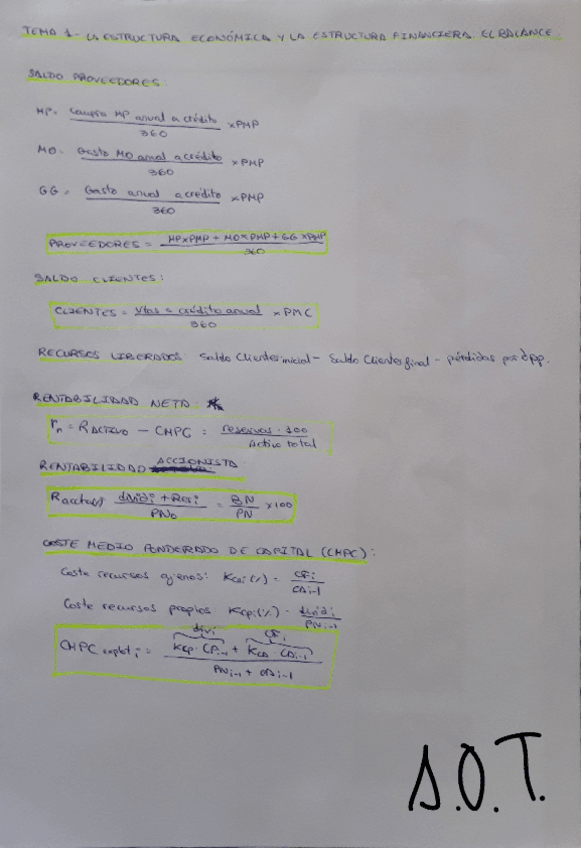 TEMA 1.- LA ESTRUCTURA ECONÓMICA Y LA ESTRUCTURA FINANCIERA. EL BALANCE.
SALDO PROVEEDORES:
MP = Compra MP anual a crédito / 360 x PMP
MO = Gasto MO anual a crédito / 360 x PMP
GG = Gasto anual a crédito / 360 x PMP
PROVEEDORES = MP x PMP + MO x PMP + GG x PMP / 360
SALDO CLIENTES:
CLIENTES = Vtas a crédito anual / 360 x PMC
RECURSOS LIBERADOS: Saldo Clientes inicial - Saldo Clientes final - pérdidas por dpp.
RENTABILIDAD NETA:
rn = R ACTIVO - CMPC = reservas · 100 / Activo total
RENTABILIDAD ACCIONISTA:
R accta(i) dividi + Resi / PN0 = BN / PN x 100
COSTE MEDIO PONDERADO DE CAPITAL (CMPC):
Coste recursos ajenos: Kcai (%) = CFi / CAi-1
Coste recursos propios: Kcpi (%) = dividi / PNi-1
divi CFi
CMPC explot i = Kcp · CPi-1 + Kca · CAi-1 / PNi-1 + CAi-1
S.O.T.